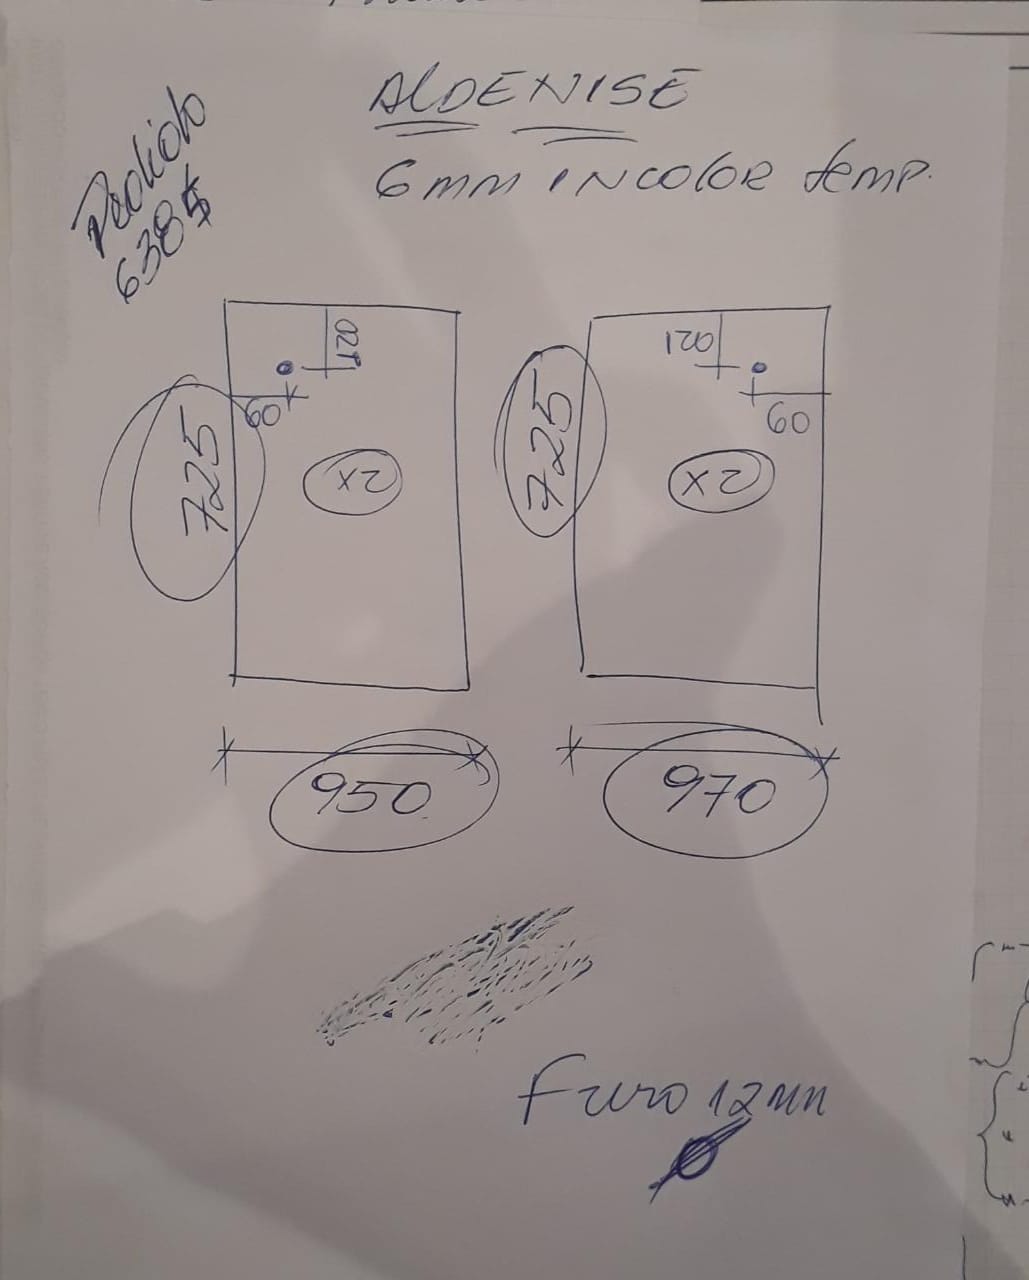 ALDENISE
6mm INCOLOR temp.
Pedido
6385
120
60
725
2x
120
60
725
2x
950
970
Furo 12mm